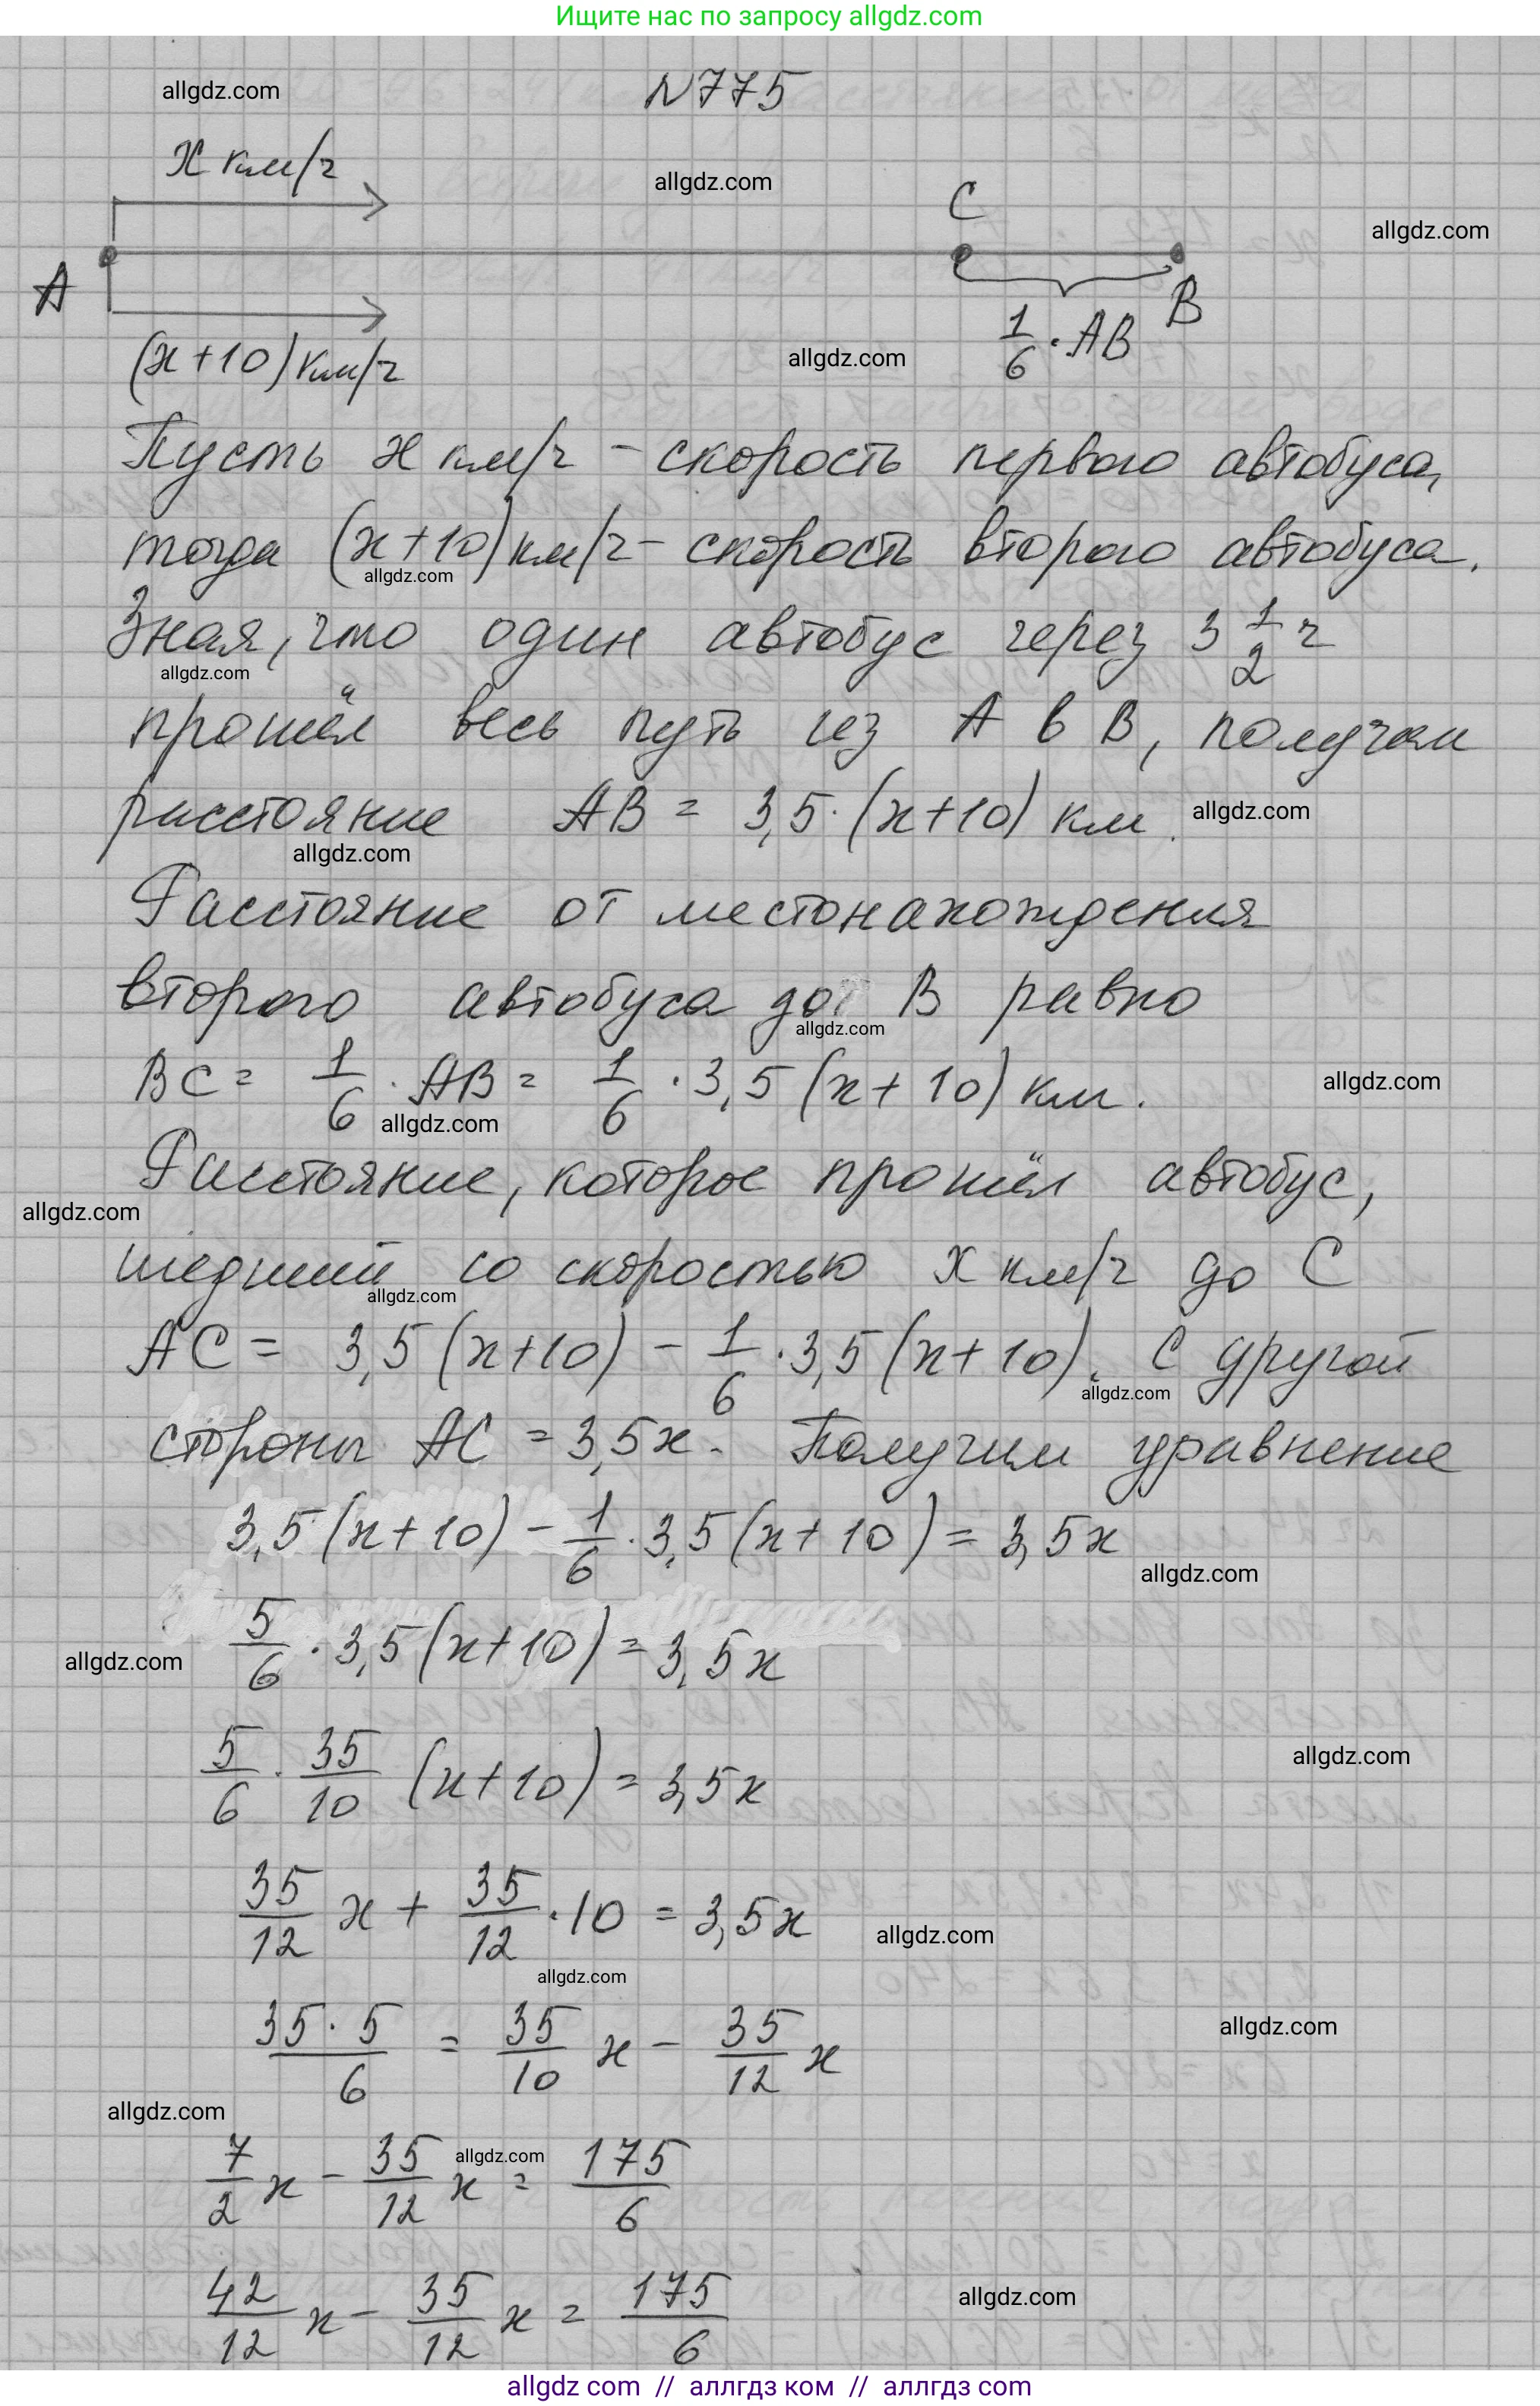 Ищите нас по запросу allgdz.com
allgdz.com
N775
x км/ч
allgdz.com
C
allgdz.com
A
B
(x+10) км/ч
allgdz.com
1/6 · AB
Пусть x км/ч – скорость первого автобуса,
тогда (x+10) км/ч – скорость второго автобуса.
allgdz.com
Зная, что один автобус через 3 1/2 ч
allgdz.com
прошёл весь путь из A в B, получим
расстояние AB = 3,5·(x+10) км.
allgdz.com
allgdz.com
Расстояние от местонахождения
второго автобуса до B равно
allgdz.com
BC = 1/6 · AB = 1/6 · 3,5(x+10) км.
allgdz.com
allgdz.com
Расстояние, которое прошёл автобус,
allgdz.com
шедший со скоростью x км/ч до C
allgdz.com
AC = 3,5(x+10) – 1/6 · 3,5(x+10). С другой
allgdz.com
стороны AC = 3,5x. Получим уравнение
3,5(x+10) – 1/6 · 3,5(x+10) = 3,5x
allgdz.com
5/6 · 3,5(x+10) = 3,5x
allgdz.com
5/6 · 35/10 (x+10) = 3,5x
allgdz.com
35/12 x + 35/12 · 10 = 3,5x
allgdz.com
allgdz.com
35·5/6 = 35/10 x – 35/12 x
allgdz.com
allgdz.com
7/2 x – 35/12 x = 175/6
allgdz.com
42/12 x – 35/12 x = 175/6
allgdz.com
allgdz com // аллгдз ком // аллгдз com